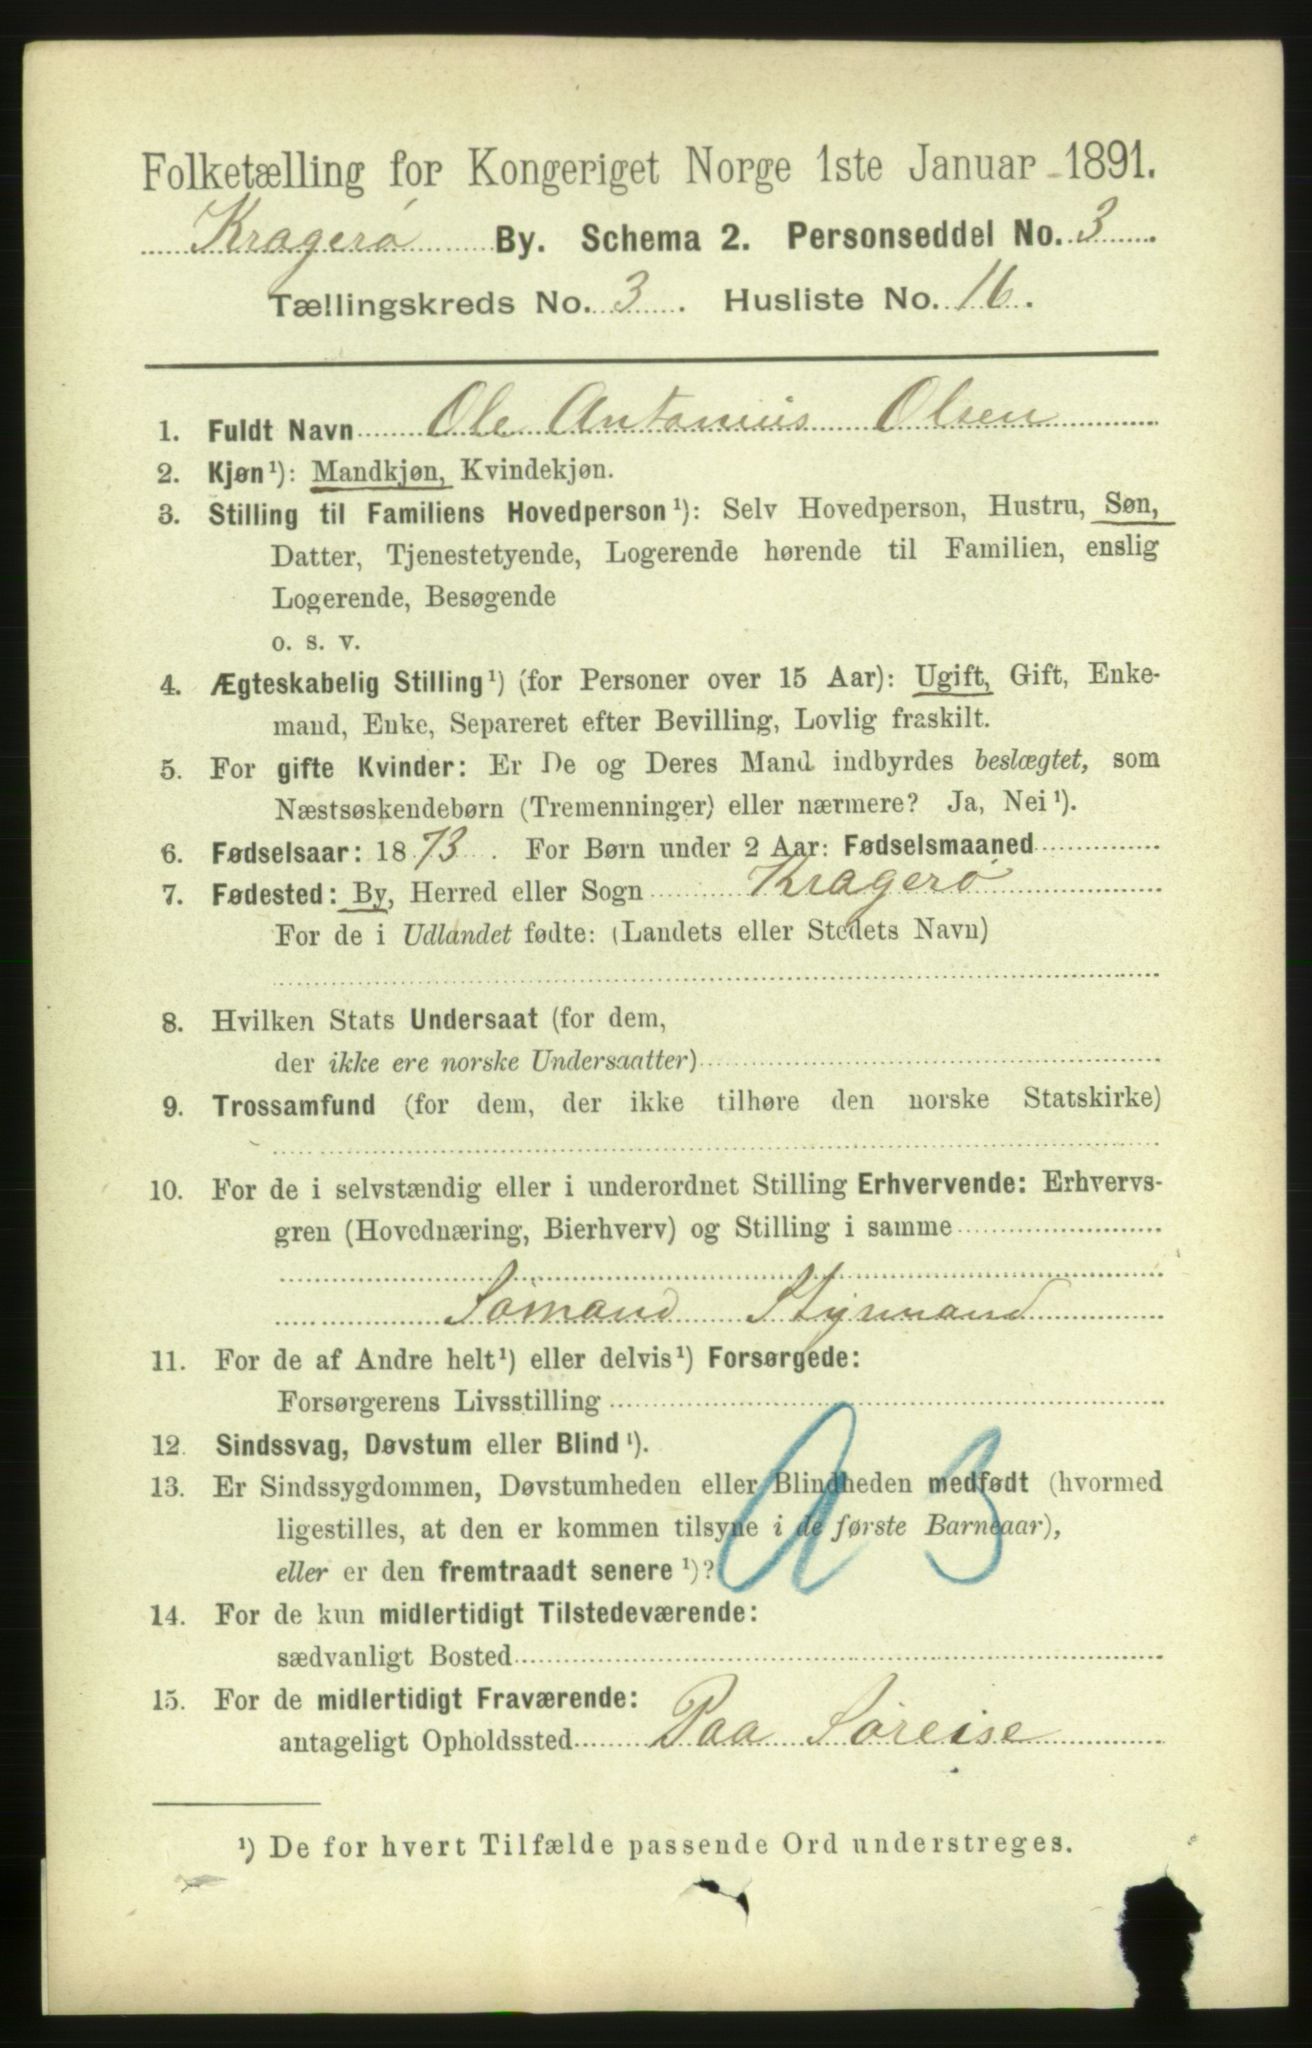 Folketælling for Kongeriget Norge 1ste Januar 1891.
Kragerø By. Schema 2. Personseddel No. 3
Tællingskreds No. 3. Husliste No. 16.
1. Fuldt Navn Ole Antonius Olsen
2. Kjøn¹): Mandkjøn, Kvindekjøn.
3. Stilling til Familiens Hovedperson¹): Selv Hovedperson, Hustru, Søn,
Datter, Tjenestetyende, Logerende hørende til Familien, enslig
Logerende, Besøgende
o. s. v.
4. Ægteskabelig Stilling¹) (for Personer over 15 Aar): Ugift, Gift, Enke-
mand, Enke, Separeret efter Bevilling, Lovlig fraskilt.
5. For gifte Kvinder: Er De og Deres Mand indbyrdes beslægtet, som
Næstsøskendebørn (Tremenninger) eller nærmere? Ja, Nei¹).
6. Fødselsaar: 1873. For Børn under 2 Aar: Fødselsmaaned
7. Fødested: By, Herred eller Sogn Kragerø
For de i Udlandet fødte: (Landets eller Stedets Navn)
8. Hvilken Stats Undersaat (for dem,
der ikke ere norske Undersaatter)
9. Trossamfund (for dem, der ikke tilhøre den norske Statskirke)
10. For de i selvstændig eller i underordnet Stilling Erhvervende: Erhvervs-
gren (Hovednæring, Bierhverv) og Stilling i samme
Sømand Styrmand
11. For de af Andre helt¹) eller delvis¹) Forsørgede:
Forsørgerens Livsstilling
12. Sindssvag, Døvstum eller Blind¹).
13. Er Sindssygdommen, Døvstumheden eller Blindheden medfødt (hvormed
ligestilles, at den er kommen tilsyne i de første Barneaar),
eller er den fremtraadt senere¹)?
14. For de kun midlertidigt Tilstedeværende:
sædvanligt Bosted
15. For de midlertidigt Fraværende:
antageligt Opholdssted Paa Søreise
¹) De for hvert Tilfælde passende Ord understreges.